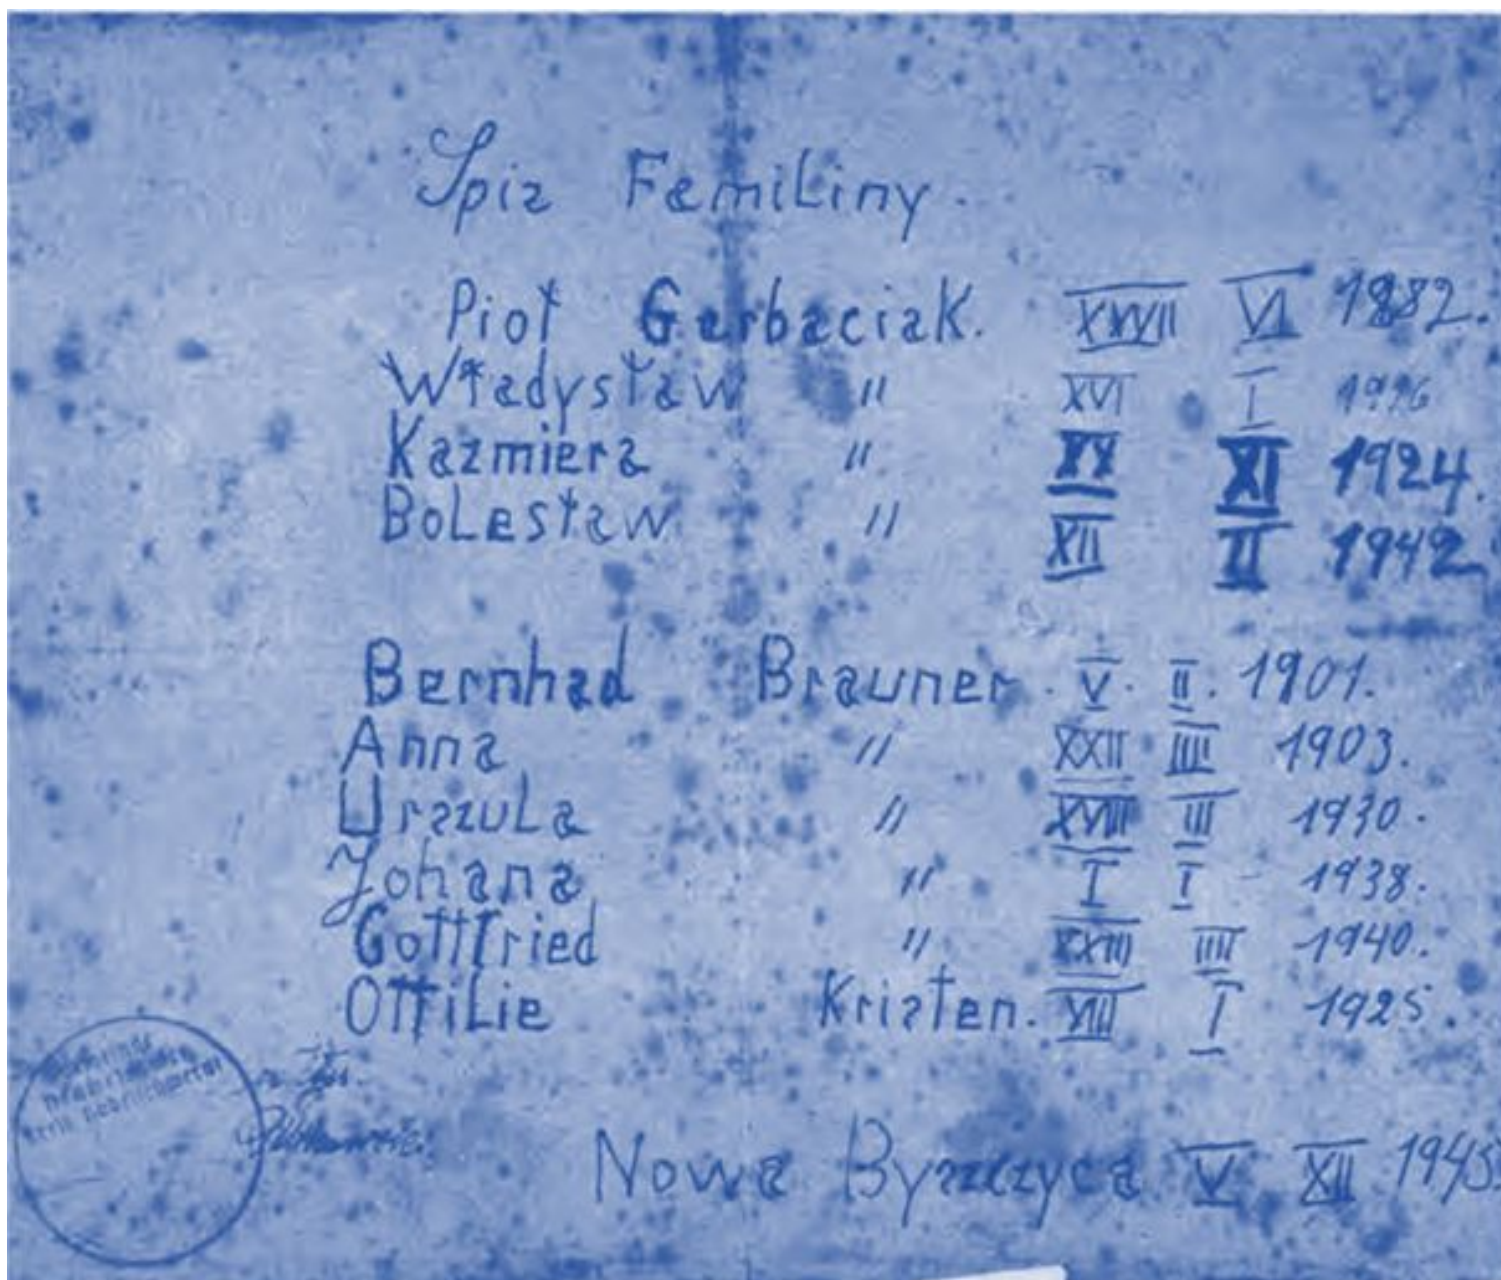 Spis Familiny.
Piotr Garbaciak. XVVII VI 1882.
Władysław " XVI I
Kazmiera " XX XI 1924.
Bolesław " XII II 1942
Bernhad Brauner. V. II. 1901.
Anna " XXII IIII 1903.
Urszula " XVIII III 1930.
Johana " I I 1938.
Gottfried " XXIII IIII 1940.
Ottilie Kristen. VIII I 1925.
Gemeinde
Nowa Byszczyca V XII 1945